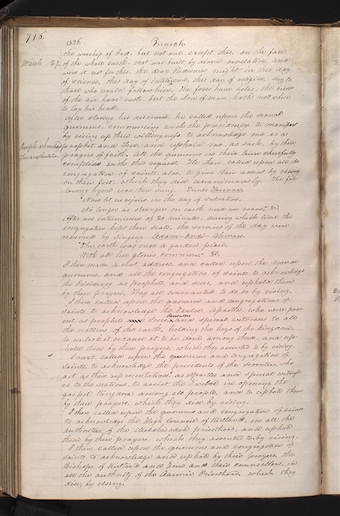 716.
1836
March
the worship of God, but not one except this, on the face
March 27. of the whole earth, that was built by divine revelation, and
were it not for this, the dear Redeemer might in this day
of science, this day of intelligence, this day of religion, say to
those who would follow him, The foxes have holes, the birds
of the air have nests, but the Son of man hath not where
to lay his head.
After closing his discourse, he called upon the several
quorums, commencing with the presidency, to manifest
by rising up, their willingness to acknowledge me as a
prophet and Seer, and uphold me, as such, by their
prayers of faith, all the quorums in their turn cheerfully
complied with this request. He then called upon all the
congregation of saints, also, to give their assent by rising
on their feet, which they did unanimously. The fol-
lowing hymn was then sung.
"Now let us rejoice in the day of salvation,
No longer as strangers on earth need we roam." &c
After an intermission of 20 minutes, during which time the
congregation kept their seats, the services of the day were
resumed by singing
"This earth was once a garden place,
With all her glories common" &c.
I then made a short address, and called upon the several
quorums, and all the congregation of saints to acknowledge
the Presidency as prophets, and seers, and uphold them
by their prayers. They all covenanted to do so by rising.
I then called upon the quorums and congregation of
saints to acknowledge the Twelve Apostles, who were pres-
ent as prophets seers, and special witnesses to all
the nations of the earth, holding the keys of the kingdom,
to unlock it or cause it to be done among them, and up-
hold them by their prayers, which they assented to by rising.
I next called upon the quorums and congregation of
saints to acknowledge the presidents of the Seventies, who
act as their representatives, as apostles and special witness-
es to the nations, to assist the Twelve in opening the
gospel kingdom among all people, and to uphold them
by their prayers, which they did by rising.
I then called upon the quorums and congregation of saints
to acknowledge the High Council of Kirtland, in all the
authorities of the Melchisedek priesthood, and uphold
them by their prayers, which they assented to by rising.
I then called upon the quorums and congregation of
saints to acknowledge and uphold by their prayers, the
Bishops of Kirtland and Zion and their counsellors, in
all the authority of the Aaronic Priesthood, which they
did, by rising.